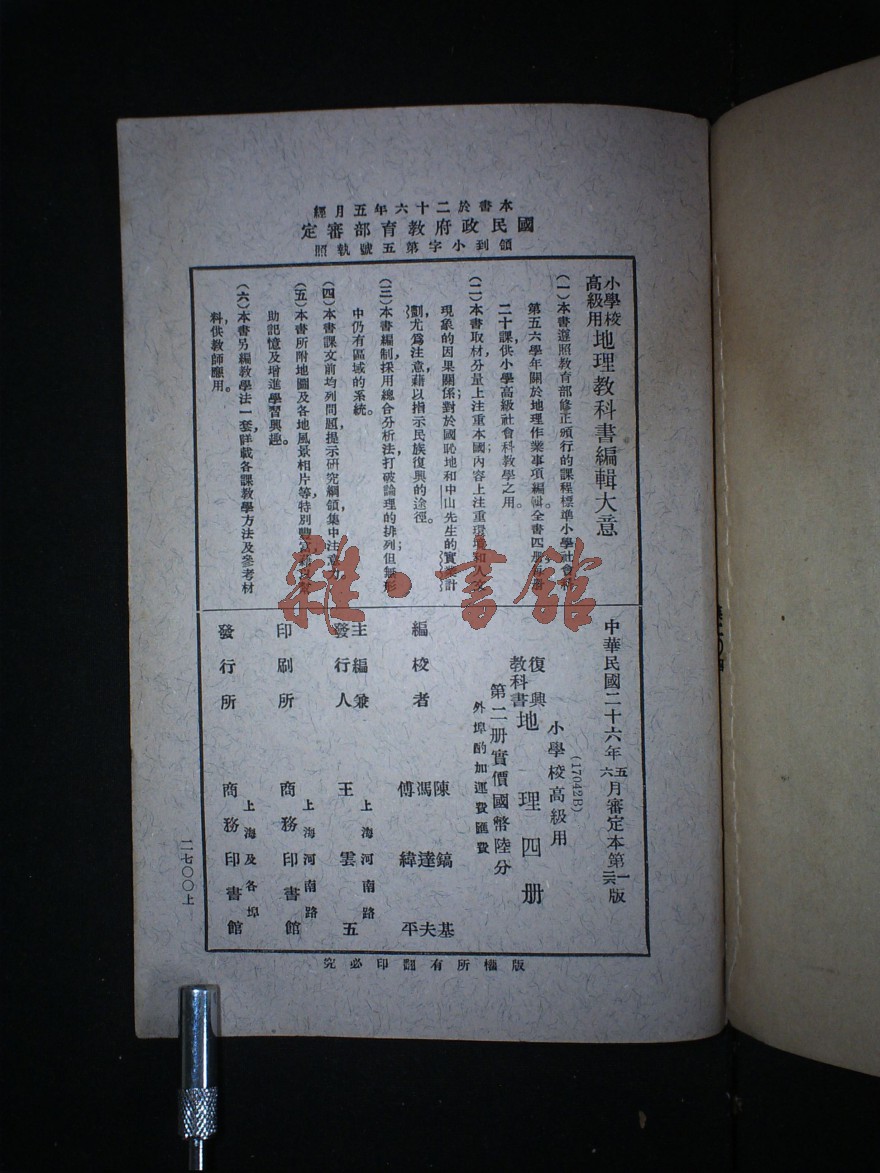 本書於二十六年五月經
國民政府教育部審定
領到小字第五號執照
小學校
高級用
地理教科書編輯大意
(一)本書遵照教育部修正頒行的課程標準小學社會科
第五六學年關於地理作業事項編輯全書四冊每冊
二十課,供小學高級社會科教學之用。
(二)本書取材,分量上注重本國;內容上注重環境和人文
現象的因果關係;對於國恥地和中山先生的實業計
劃,尤為注意,藉以指示民族復興的途徑。
(三)本書編制採用總合分析法,打破論理的排列;但無形
中仍有區域的系統。
(四)本書課文前均列問題,提示研究綱領,集中注意力。
(五)本書所附地圖及各地風景相片等,特別豐富,
助記憶及增進學習興趣。
(六)本書另編教學法一套,詳載各課教學方法及參考材
料,供教師應用。
中華民國二十六年
五
六
月審定本第
一
版
(17042B)
小學校高級用
復興
教科書
地理四册
第二册實價國幣陸分
外埠酌加運費匯費
編校者
陳鎬基
馮達夫
傅緯平
主編兼
發行人
上海河南路
王雲五
印刷所
上海河南路
商務印書館
發行所
上海及各埠
商務印書館
二七〇〇上
版權所有翻印必究
雜·書館